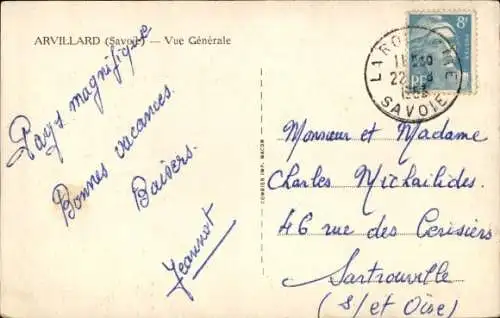 ARVILLARD (Savoie) — Vue Générale
Pays magnifique
Bonnes vacances
Baisers.
Jeannot
COMBIER IMP. MACON
8F
RF
LA RO
SAVOIE
Monsieur et Madame
Charles Michailidès.
46 rue des Cerisiers
Sartrouville
(S/et Oise)